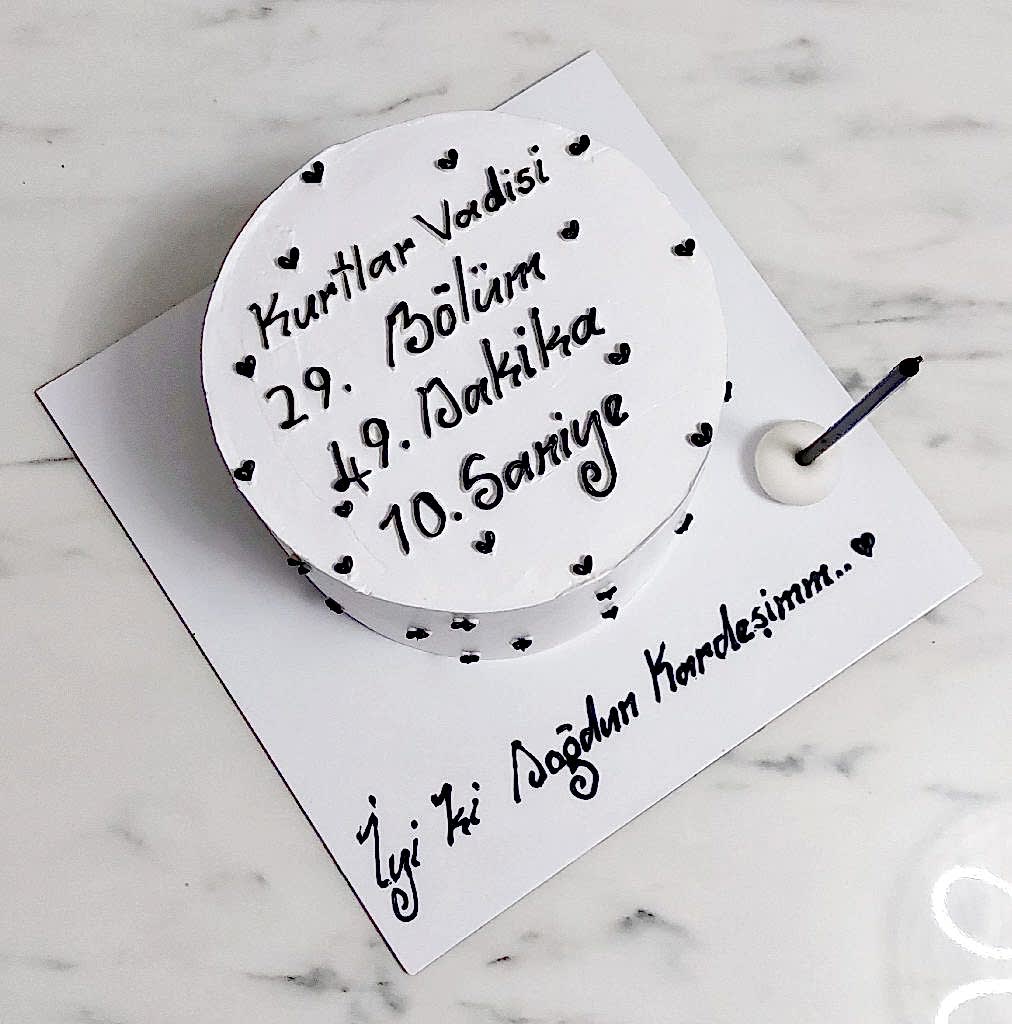 Kurtlar Vadisi
29. Bölüm
49. Dakika
10. Saniye
İyi ki Doğdun Kardeşimm..